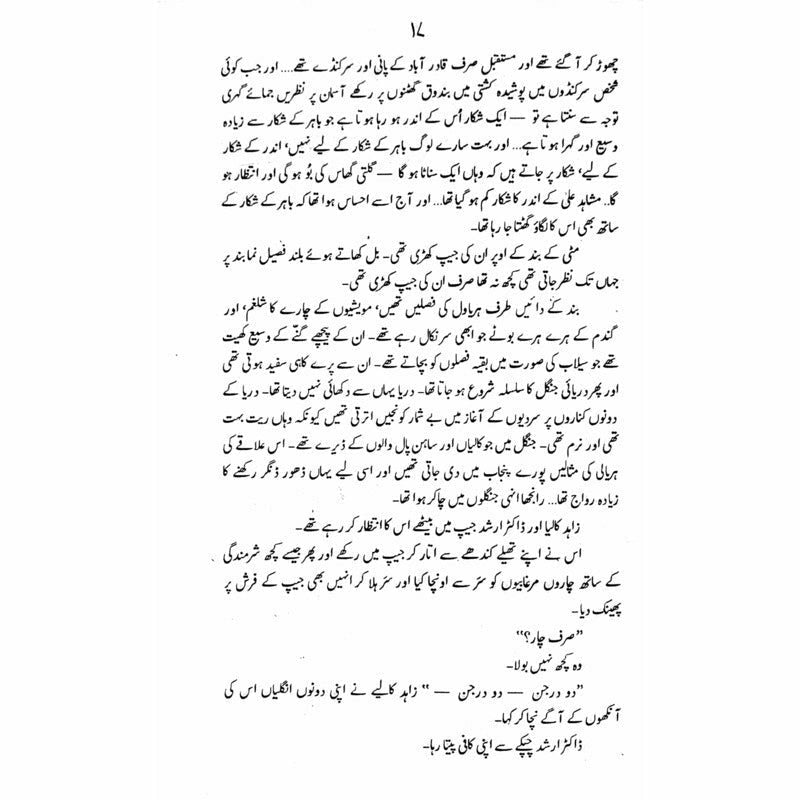 ۱۷
چھوڑ کر آ گئے تھے اور مستقبل صرف قادر آباد کے پانی اور سرکنڈے تھے.... اور جب کوئی
شخص سرکنڈوں میں پوشیدہ کشتی میں بندوق گھٹنوں پر رکھے آسمان پر نظریں جمائے گہری
توجہ سے سنتا ہے تو — ایک شکار اُس کے اندر ہو رہا ہوتا ہے جو باہر کے شکار سے زیادہ
وسیع اور گہرا ہوتا ہے... اور بہت سارے لوگ باہر کے شکار کے لیے نہیں، اندر کے شکار
کے لیے، شکار پر جاتے ہیں کہ وہاں ایک سناٹا ہو گا — گلتی گھاس کی بُو ہو گی اور انتظار ہو
گا.. مشاہد علی کے اندر کا شکار کم ہو گیا تھا... اور آج اسے احساس ہوا تھا کہ باہر کے شکار کے
ساتھ بھی اس کا لگاؤ گھٹتا جا رہا تھا۔
مٹی کے بند کے اوپر ان کی جیپ کھڑی تھی۔ بل کھاتے ہوئے بلند فصیل نما بند پر
جہاں تک نظر جاتی تھی کچھ نہ تھا صرف ان کی جیپ کھڑی تھی۔
بند کے دائیں طرف ہریاول کی فصلیں تھیں، مویشیوں کے چارے کا شلغم، اور
گندم کے ہرے ہرے بوٹے جو ابھی سر نکال رہے تھے۔ ان کے پیچھے گنّے کے وسیع کھیت
تھے جو سیلاب کی صورت میں بقیہ فصلوں کو بچاتے تھے۔ ان سے پرے کاہی سفید ہوتی تھی
اور پھر دریائی جنگل کا سلسلہ شروع ہو جاتا تھا۔ دریا یہاں سے دکھائی نہیں دیتا تھا۔ دریا کے
دونوں کناروں پر سردیوں کے آغاز میں بے شمار کونجیں اترتی تھیں کیونکہ وہاں ریت بہت
تھی اور نرم تھی۔ جنگل میں جو کالیاں اور ساہن پال والوں کے ڈیرے تھے۔ اس علاقے کی
ہریالی کی مثالیں پورے پنجاب میں دی جاتی تھیں اور اسی لیے یہاں ڈھور ڈنگر رکھنے کا
زیادہ رواج تھا... رانجھا انہی جنگلوں میں چاکر ہوا تھا۔
زاہد کالیا اور ڈاکٹر ارشد جیپ میں بیٹھے اس کا انتظار کر رہے تھے۔
اس نے اپنے تھیلے کندھے سے اتار کر جیپ میں رکھے اور پھر جیسے کچھ شرمندگی
کے ساتھ چاروں مرغابیوں کو سَر سے اونچا کیا اور سَر ہلا کر انہیں بھی جیپ کے فرش پر
پھینک دیا۔
”صرف چار؟“
وہ کچھ نہیں بولا۔
”دو درجن — دو درجن — “ زاہد کالیے نے اپنی دونوں انگلیاں اس کی
آنکھوں کے آگے نچا کر کہا۔
ڈاکٹر ارشد چپکے سے اپنی کافی پیتا رہا۔